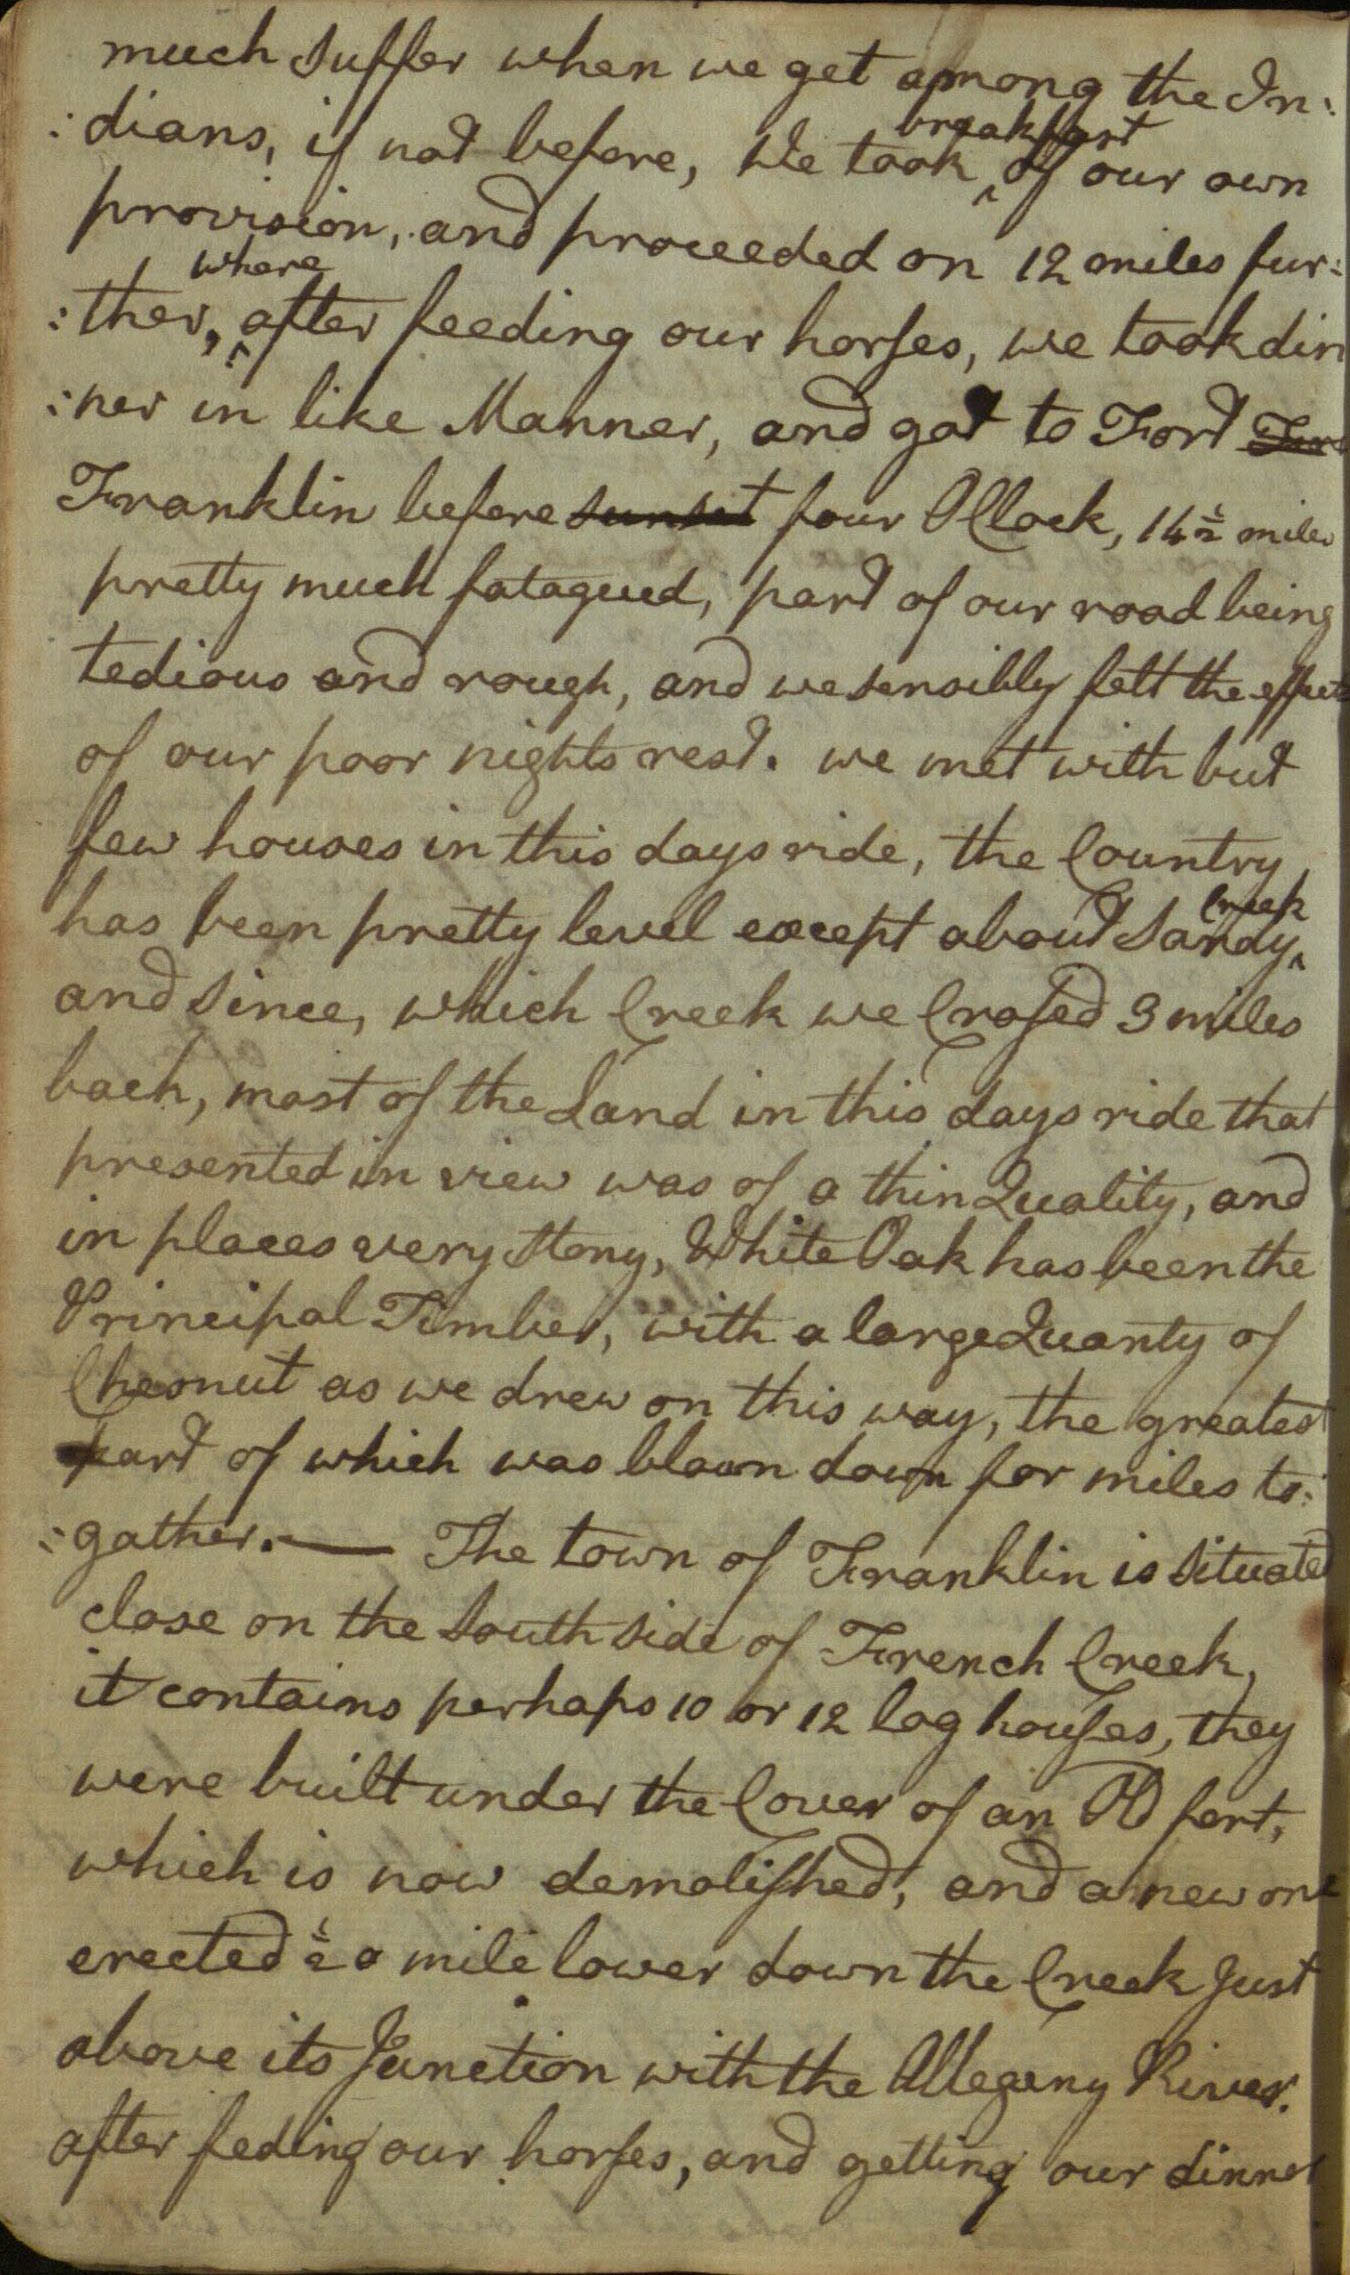 much suffer when we get among the In:
:dians, if not before, We took ^breakfast of our own
provision, and proceeded on 12 miles fur:
:ther, ^where after feeding our horses, we took din
:ner in like Manner, and got to Fort Fra
Franklin before sunset four OClock, 14½ miles
pretty much fatagued, part of our road being
tedious and rough, and we sensibly felt the effects
of our poor nights rest. we met with but
few houses in this days ride, the Country
has been pretty level except about Sandy ^Creek
and since, which Creek we Crosed 3 miles
back, most of the Land in this days ride that
presented in view was of a thin Quality, and
in places very stony, White Oak has been the
Principal Timber, with a large Quanty of
Chesnut as we drew on this way, the greatest
part of which was blown down for miles to:
:gather. — The town of Franklin is situated
close on the South side of French Creek,
it contains perhaps 10 or 12 log houses, they
were built under the Cover of an Old fort,
which is now demolished, and a new one
erected ½ a mile lower down the Creek Just
above its Junction with the Allegany River.
after feding our horses, and getting our dinner